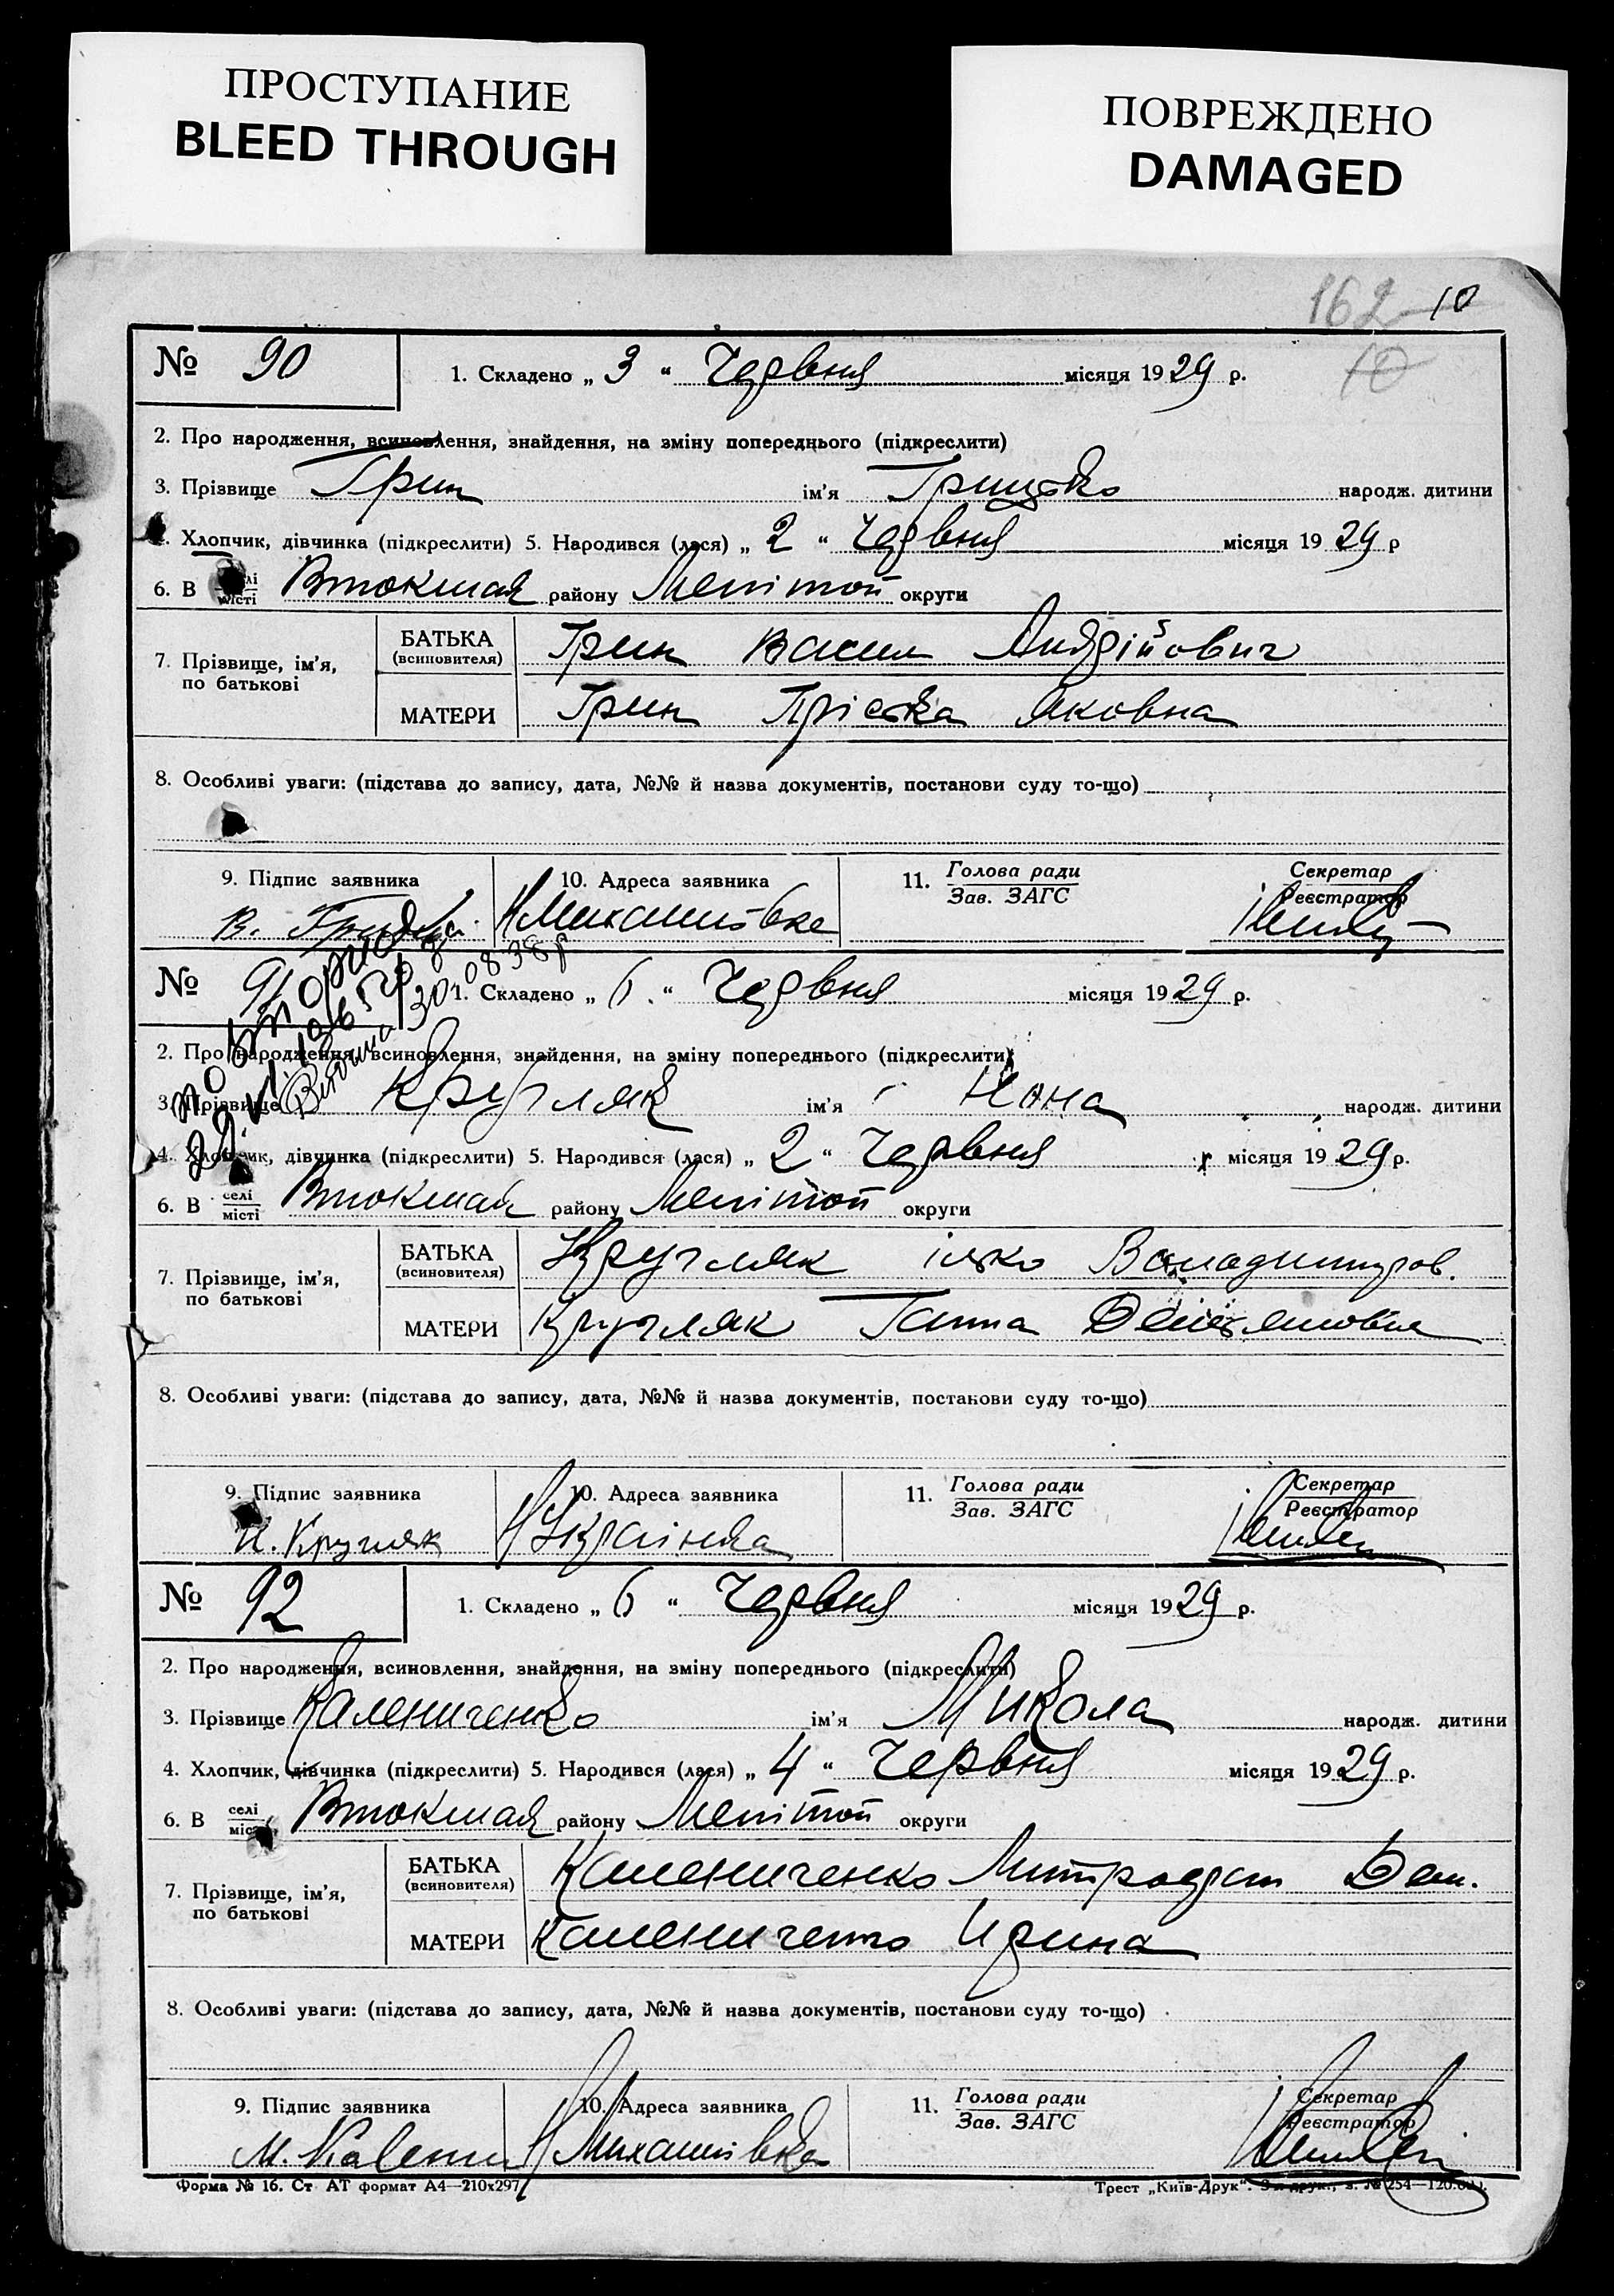 ПРОСТУПАНИЕ
BLEED THROUGH
ПОВРЕЖДЕНО
DAMAGED
162 10
10
№ 90 1. Складено „ 3 “ Червня місяця 1929 р.
2. Про народження, всиновлення, знайдення, на зміну попереднього (підкреслити)
3. Прізвище Грин ім'я Грицько народж. дитини
4. Хлопчик, дівчинка (підкреслити) 5. Народився (лася) „ 2 “ Червня місяця 1929 р
6. В селі місті Втокмая району Мелітоп округи
7. Прізвище, ім'я, по батькові
БАТЬКА (всиновителя) Грин Васил Андрійович
МАТЕРИ Грин Пріська Яковна
8. Особливі уваги: (підстава до запису, дата, №№ й назва документів, постанови суду то-що)
9. Підпис заявника 10. Адреса заявника 11. Голова ради Зав. ЗАГС Секретар Реєстратор
В. Н Михайлівка
№ 91 1. Складено „ 6 “ Червня місяця 1929 р.
повторно
30 08 38 р
2. Про народження, всиновлення, знайдення, на зміну попереднього (підкреслити)
3. Прізвище Кругляк ім'я Нона народж. дитини
4. Хлопчик, дівчинка (підкреслити) 5. Народився (лася) „ 2 “ Червня місяця 1929 р.
6. В селі місті Втокмая району Мелітоп округи
7. Прізвище, ім'я, по батькові
БАТЬКА (всиновителя) Кругляк Ілько Володимиров.
МАТЕРИ Кругляк Ганна
8. Особливі уваги: (підстава до запису, дата, №№ й назва документів, постанови суду то-що)
9. Підпис заявника 10. Адреса заявника 11. Голова ради Зав. ЗАГС Секретар Реєстратор
И. Кругляк Н Українка
№ 92 1. Складено „ 6 “ Червня місяця 1929 р.
2. Про народження, всиновлення, знайдення, на зміну попереднього (підкреслити)
3. Прізвище Калениченко ім'я Микола народж. дитини
4. Хлопчик, дівчинка (підкреслити) 5. Народився (лася) „ 4 “ Червня місяця 1929 р.
6. В селі місті Втокмая району Мелітоп округи
7. Прізвище, ім'я, по батькові
БАТЬКА (всиновителя) Калениченко Митродан Дем.
МАТЕРИ Калениченко Ирина
8. Особливі уваги: (підстава до запису, дата, №№ й назва документів, постанови суду то-що)
9. Підпис заявника 10. Адреса заявника 11. Голова ради Зав. ЗАГС Секретар Реєстратор
М. Н Михайлівка
Форма № 16. Ст АТ формат А4—210х297 Трест „Київ-Друк“. з. № 254—120.000.